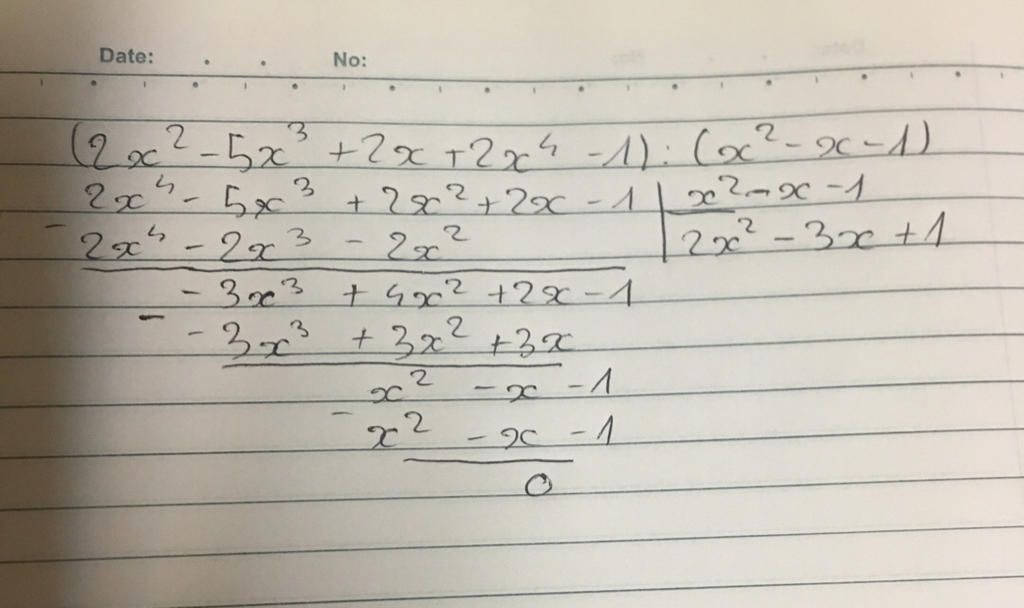 Date: . . No:
(2x² - 5x³ + 2x + 2x⁴ - 1) : (x² - x - 1)
2x⁴ - 5x³ + 2x² + 2x - 1 | x² - x - 1
- 2x⁴ - 2x³ - 2x² | 2x² - 3x + 1
- 3x³ + 4x² + 2x - 1
- - 3x³ + 3x² + 3x
x² - x - 1
- x² - x - 1
0